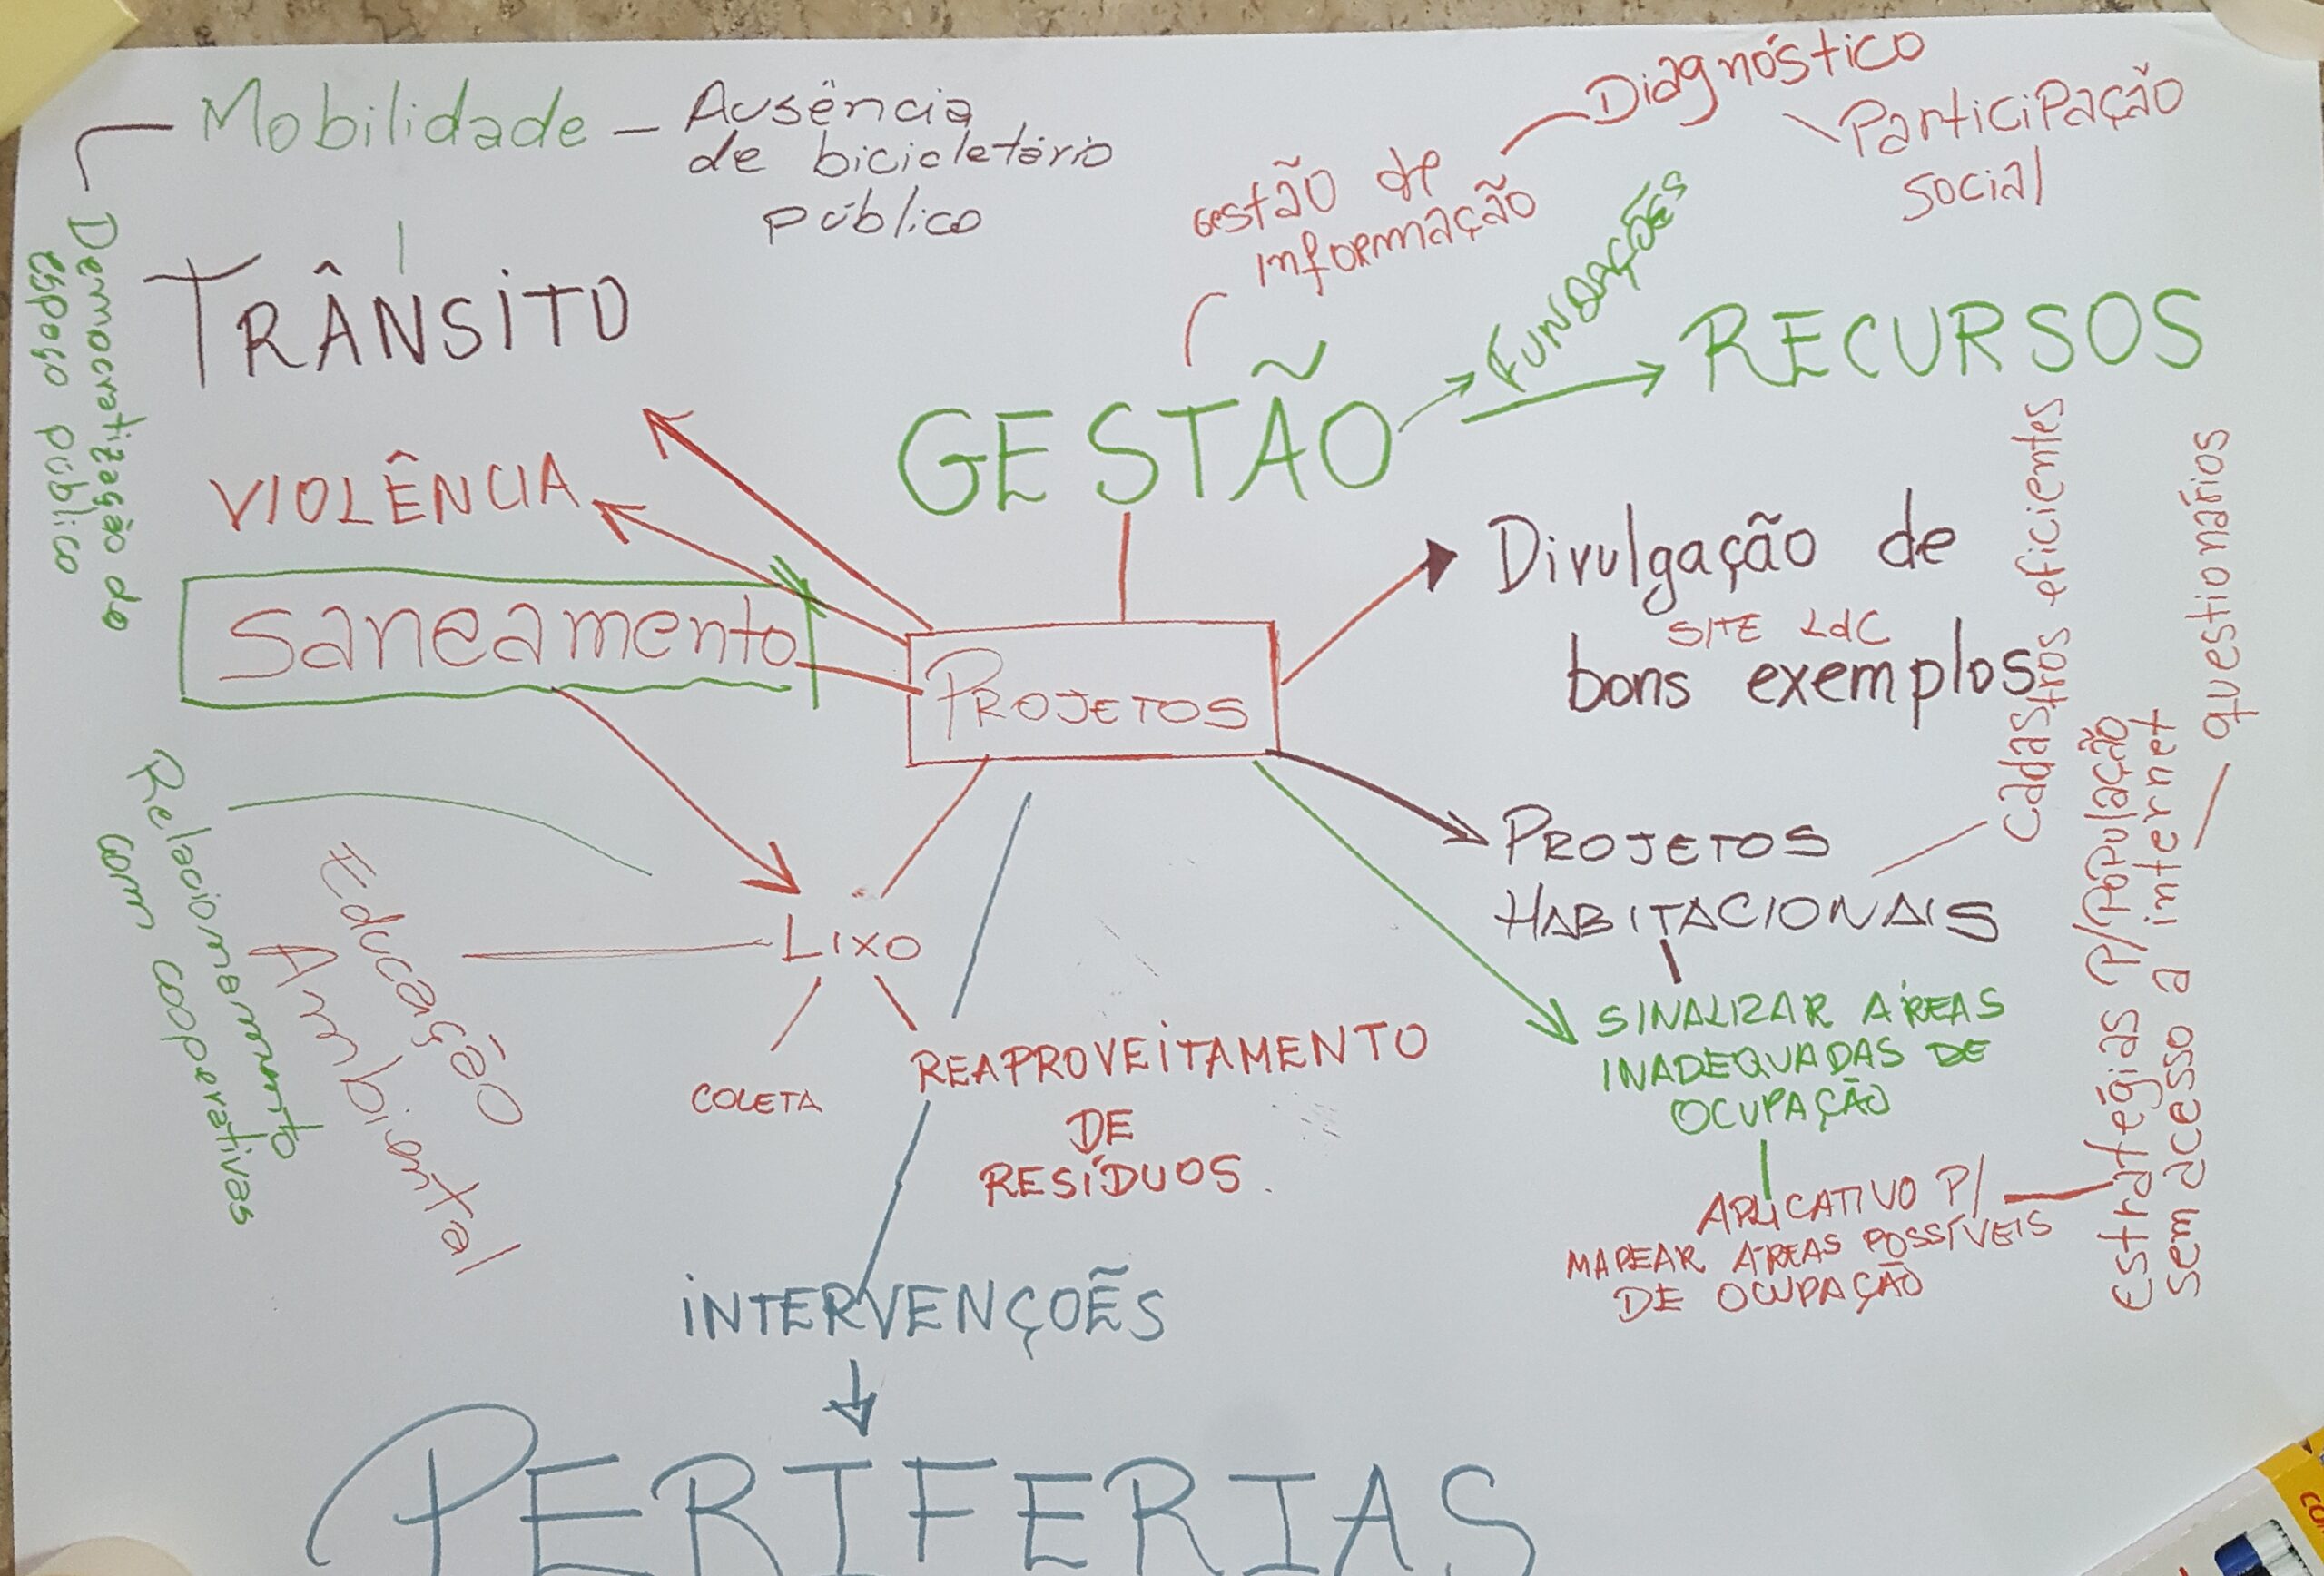 Mobilidade – Ausência
de bicicletário
público
Democratização do
espaço público
TRÂNSITO
VIOLÊNCIA
Saneamento
Diagnóstico
Participação
social
Gestão de
informação
FUNDAÇÕES
GESTÃO
RECURSOS
PROJETOS
Divulgação de
SITE LdC
bons exemplos
cadastros eficientes
questionários
PROJETOS
HABITACIONAIS
SINALIZAR ÁREAS
INADEQUADAS DE
OCUPAÇÃO
APLICATIVO P/
MAPEAR ÁREAS POSSÍVEIS
DE OCUPAÇÃO
Estratégias P/População
sem acesso a internet
Relacionamento
com cooperativas
Educação
Ambiental
LIXO
COLETA
REAPROVEITAMENTO
DE
RESÍDUOS.
INTERVENÇOẼS
PERIFERIAS